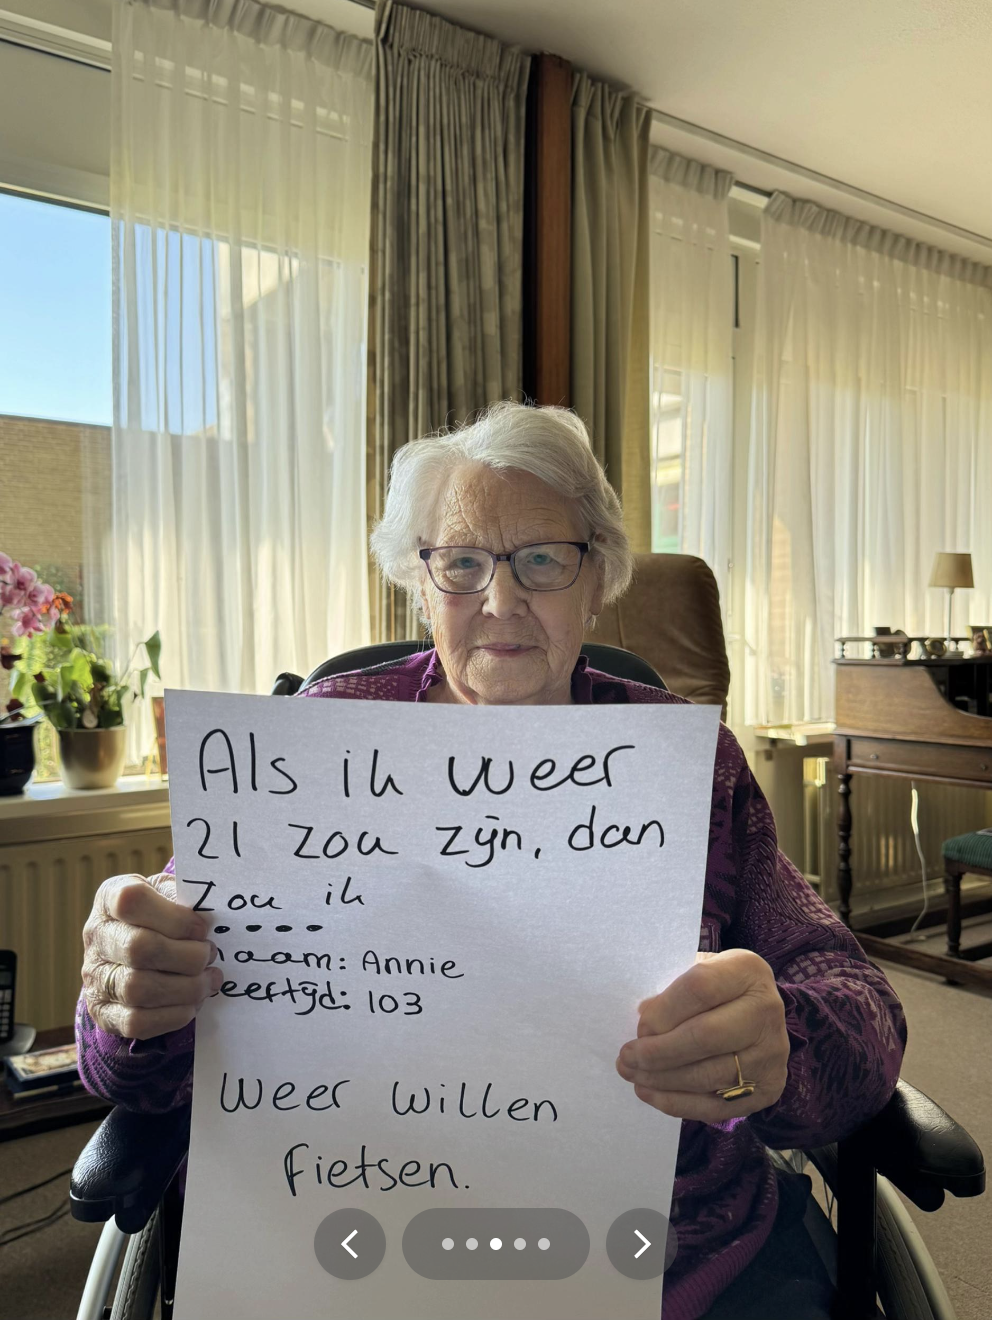 Als ik weer
21 zou zijn, dan
zou ik
....
naam: Annie
leeftijd: 103
weer willen
fietsen.